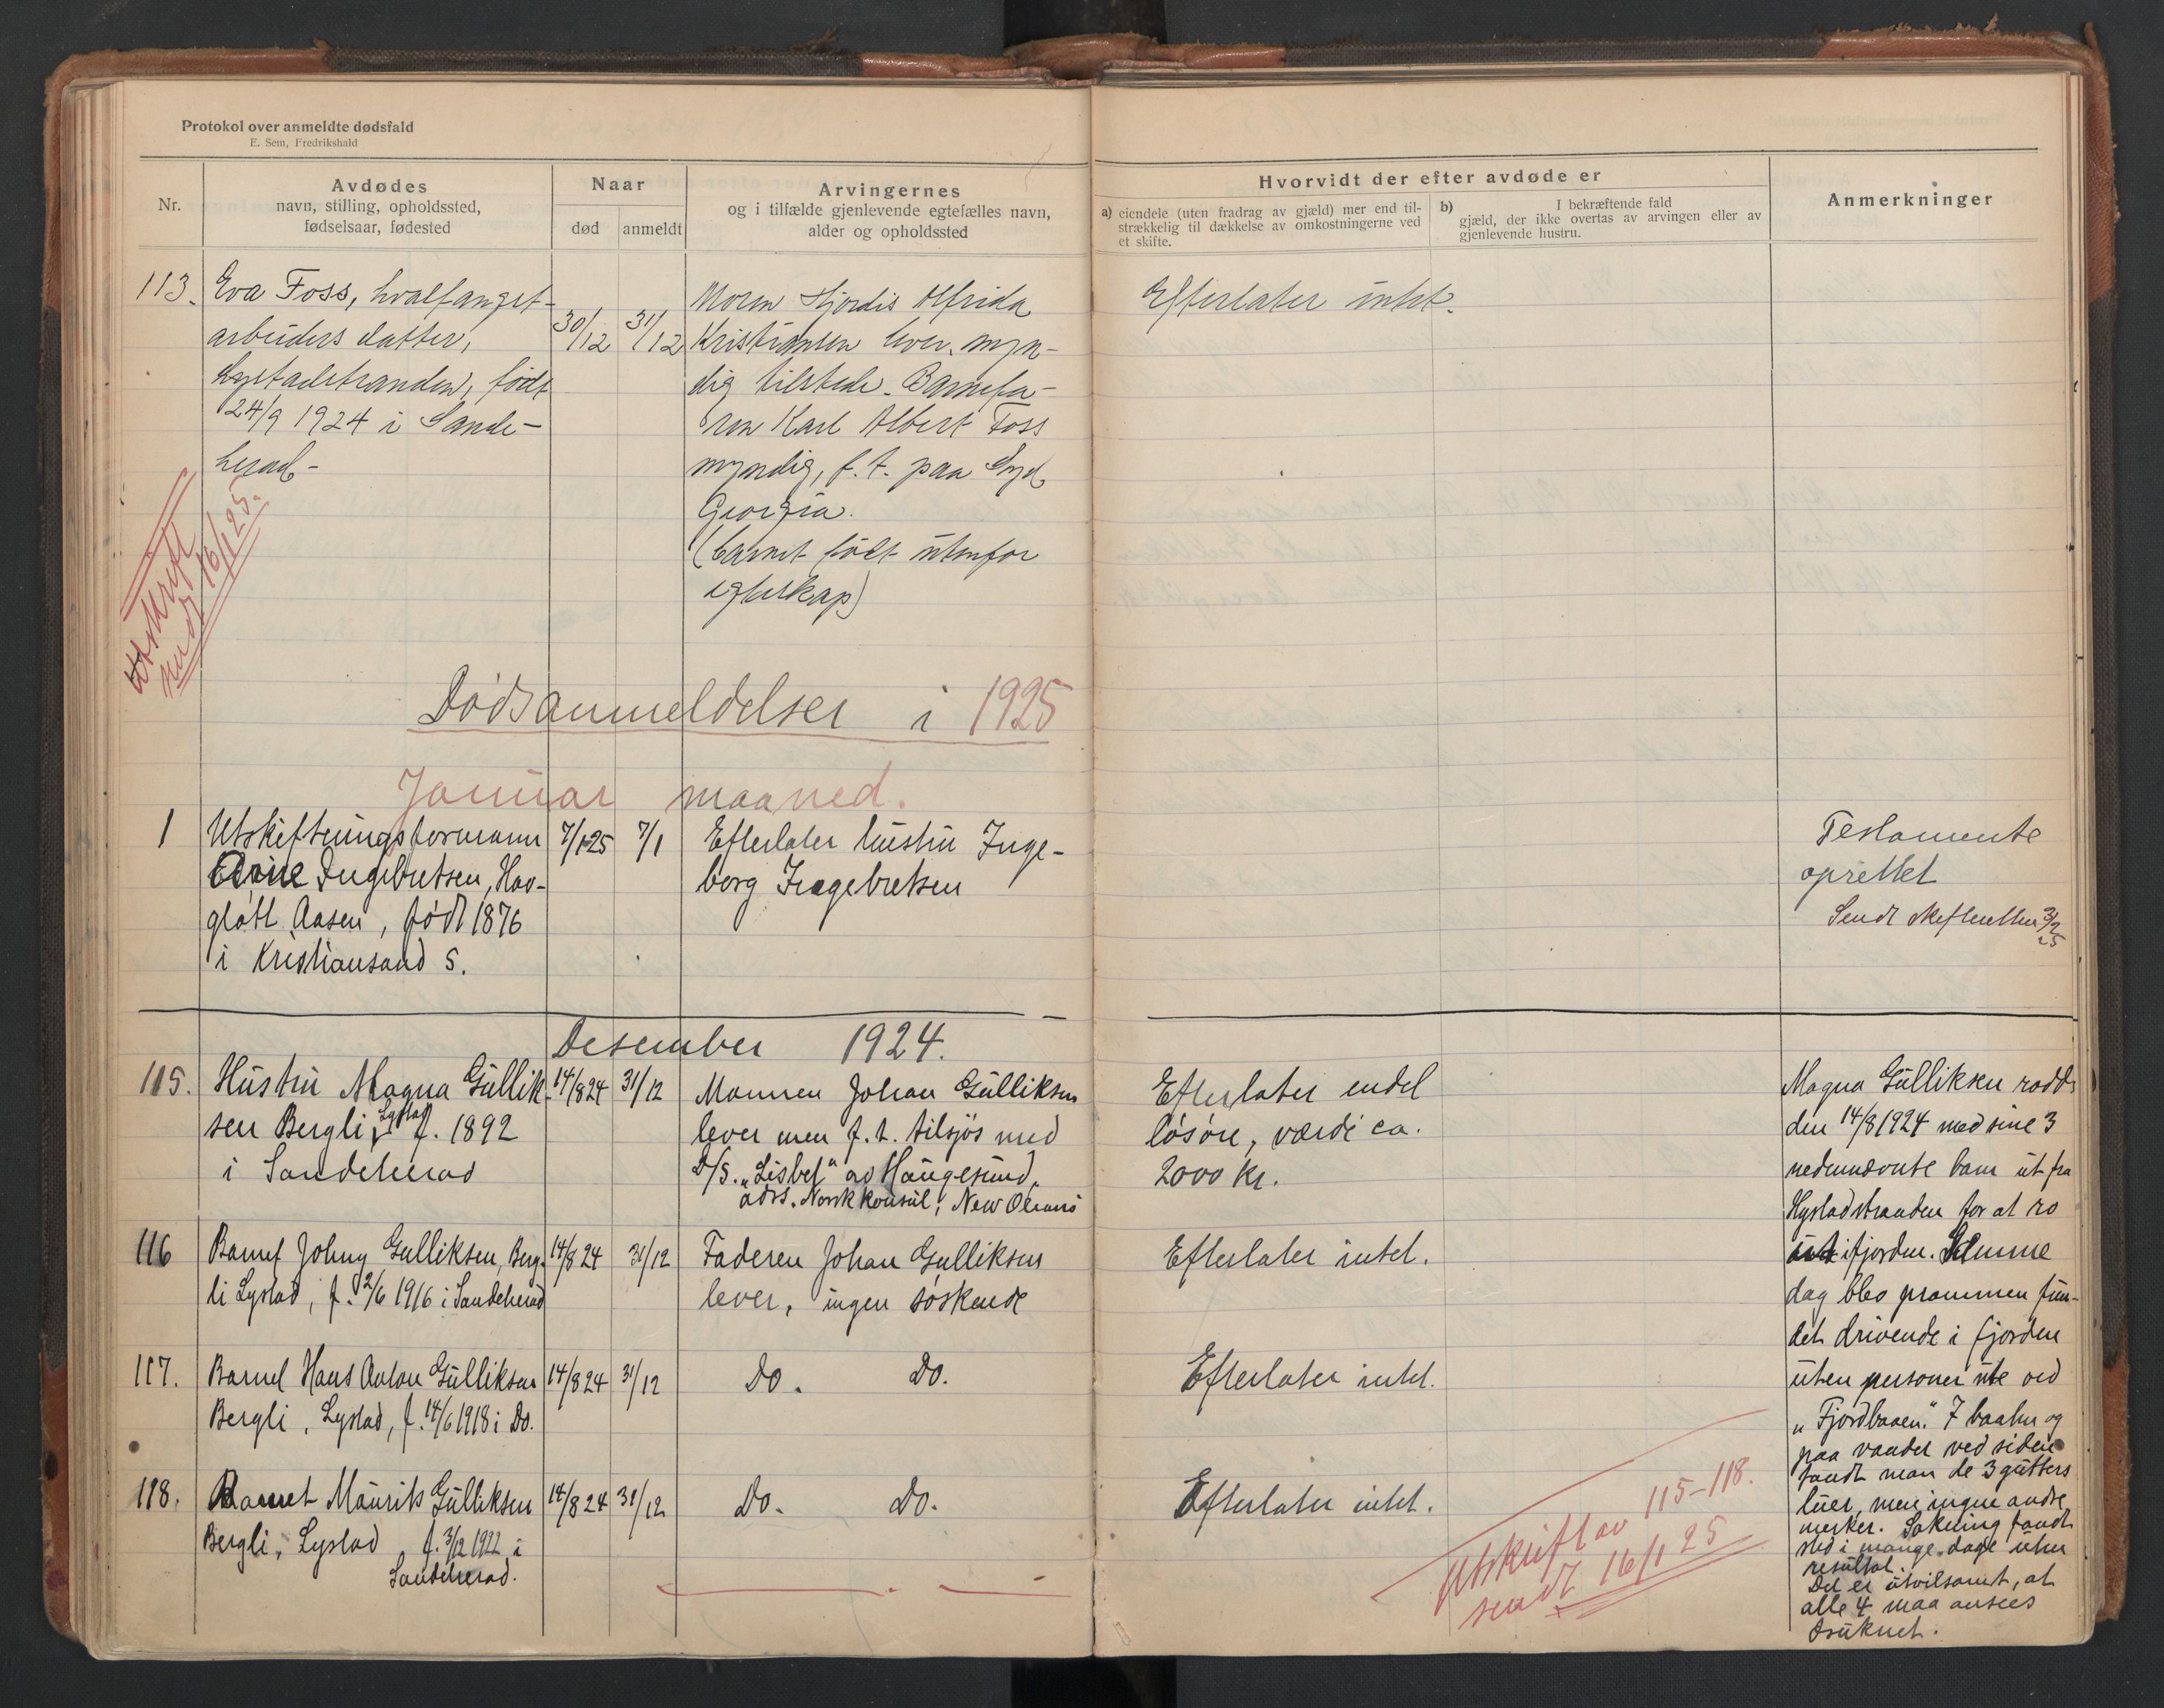 Protokol over anmeldte dødsfald
E. Sem, Fredrikshald
Nr.
Avdødes
navn, stilling, opholdssted,
fødselsaar, fødested
Naar
død
anmeldt
Arvingernes
og i tilfælde gjenlevende egtefælles navn,
alder og opholdssted
Hvorvidt der efter avdøde er
a) eiendele (uten fradrag av gjæld) mer end til-
strækkelig til dækkelse av omkostningerne ved
et skifte.
b) I bekræftende fald
gjæld, der ikke overtas av arvingen eller av
gjenlevende hustru.
Anmerkninger
113.
Eva Foss, hvalfangst-
arbeiders datter,
Lystadstranden, født
24/9 1924 i Sande-
herad-
30/12
31/12
Moren Hjørdis Alfrida
Kristiansen lever, myn-
dig tilstede. Barnefa-
ren Karl Albert Foss
myndig, f. t. paa Syd
Georgia.
(barnet født utenfor
egteskap)
Efterlater intet.
Utskrift
sendt 16/1 25.
Dødsanmeldelser i 1925
Januar maaned.
1
Utskiftningsformann
Arne Ingebretsen, Hav-
gløtt Aasen, født 1876
i Kristiansand S.
7/1-25
7/1
Efterlater hustru Inge-
borg Ingebretsen
Testamente
oprettet
Sendt skifteretten 3/2
25
Desember 1924.
115.
Hustru Magna Gullik-
sen Bergli, Lystad f. 1892
i Sandeherad
14/8 24
31/12
Mannen Johan Gulliksen
lever men f. t. tilsjøs med
D/S. „Lisbet" av Haugesund,
adrs. Norsk konsul, New Oleans
Efterlater endel
løsøre, værdi ca.
2000 kr.
Magna Gulliksen rodde
den 14/8 1924 med sine 3
nedennævnte barn ut fra
Hystadstranden for at ro
ut i fjorden. Samme
dag blev prammen fun-
det drivende i fjorden
uten personer ute ved
„Fjordbaaen." 7 baater og
paa vandet ved siden
fandt man de 3 gutters
luer, men ingen andre
merker. Sokning fandt
sted i mange dage uten
resultat.
Det er utvilsomt, at
alle 4 maa ansees
druknet.
116
Barnet Johny Gulliksen, Berg-
li Lystad, f. 2/6 1916 i Sandeherad
14/8 24
31/12
Faderen Johan Gulliksen
lever, ingen søskende
Efterlater intet.
117.
Barnet Hans Anton Gulliksen
Bergli, Lystad, f. 14/6 1918 i Do.
14/8 24
31/12
Do. Do.
Efterlater intet.
118.
Barnet Maurits Gulliksen
Bergli, Lystad, f. 3/12 1922 i
Sandeherad.
14/8 24
31/12
Do. Do.
Efterlater intet.
Utskrift av 115-118.
sendt 16/1 25